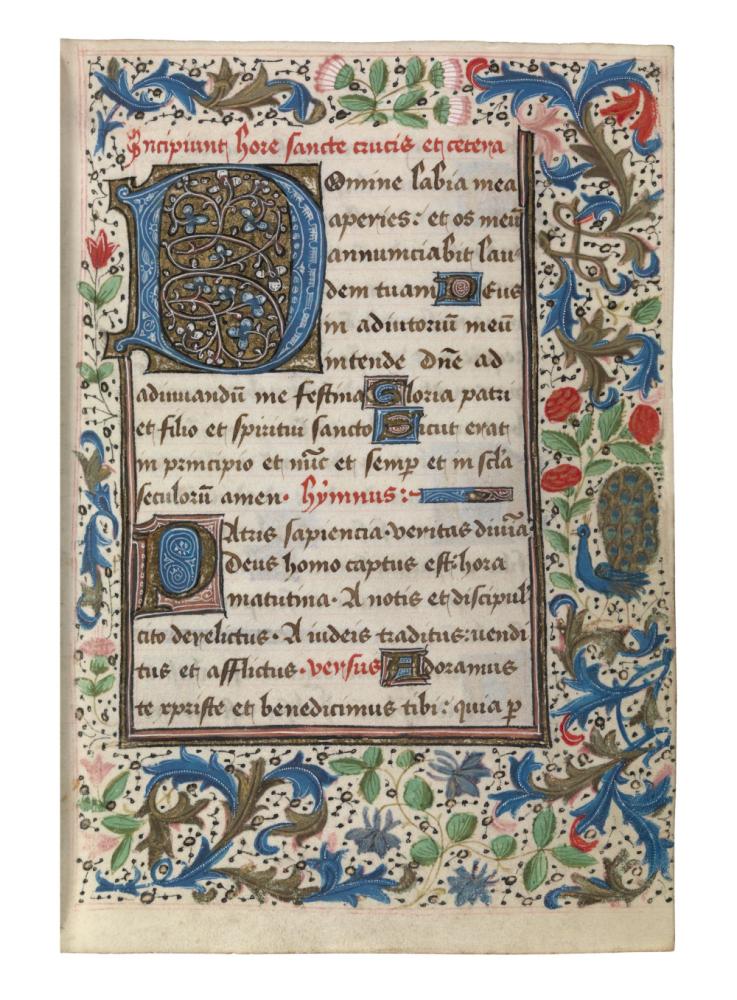 Incipiunt hore sancte crucis et cetera
Domine labia mea
aperies: et os meū
annunciabit lau
dem tuam Deus
in adiutoriū meū
intende Dn̄e ad
adiuuandū me festina Gloria patri
et filio et spiritui sancto Sicut erat
in principio et nūc et semp̄ et in scl̄a
seculorū amen. hymnus:~
Patris sapiencia. veritas diuīa.
Deus homo captus est: hora
matutina. A notis et discipul'
cito derelictus. A iudeis traditus: uendi
tus et afflictus. versus Adoramus
te xpriste et benedicimus tibi: quia ꝑ